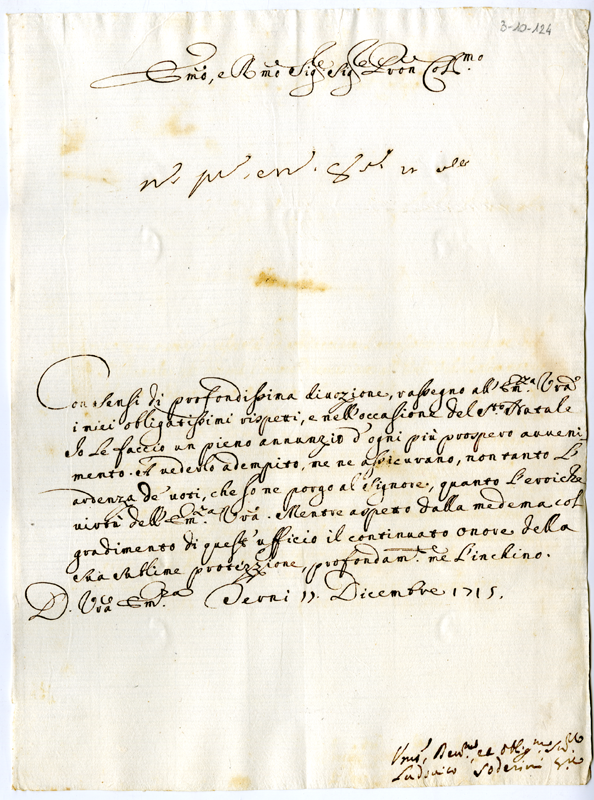 3-10-124
Emo, e Rmo Sigre Sigre Pron Collmo
Con sensi di profondissima divozione, rassegno all' Emza Vra
i miei obligatissimi rispetti, e nell'occasione del Sto Natale
Io Le faccio un pieno annunzio d'ogni più prospero avveni,
mento. A vederlo adempito, me ne assicurano, non tanto L'
ardenza de' voti, che Io ne porgo al Signore, quanto L'eroiche
virtù dell' Emza Vra. Mentre aspetto dalla medema col
gradimento di quest' ufficio il continuato onore della
Sua sublime protizzione, profondamte me L'inchino.
D. Vra Emza Terni 11. Dicembre 1715.
Umo, Devmo, et Obligmo
Ludovico Soderini